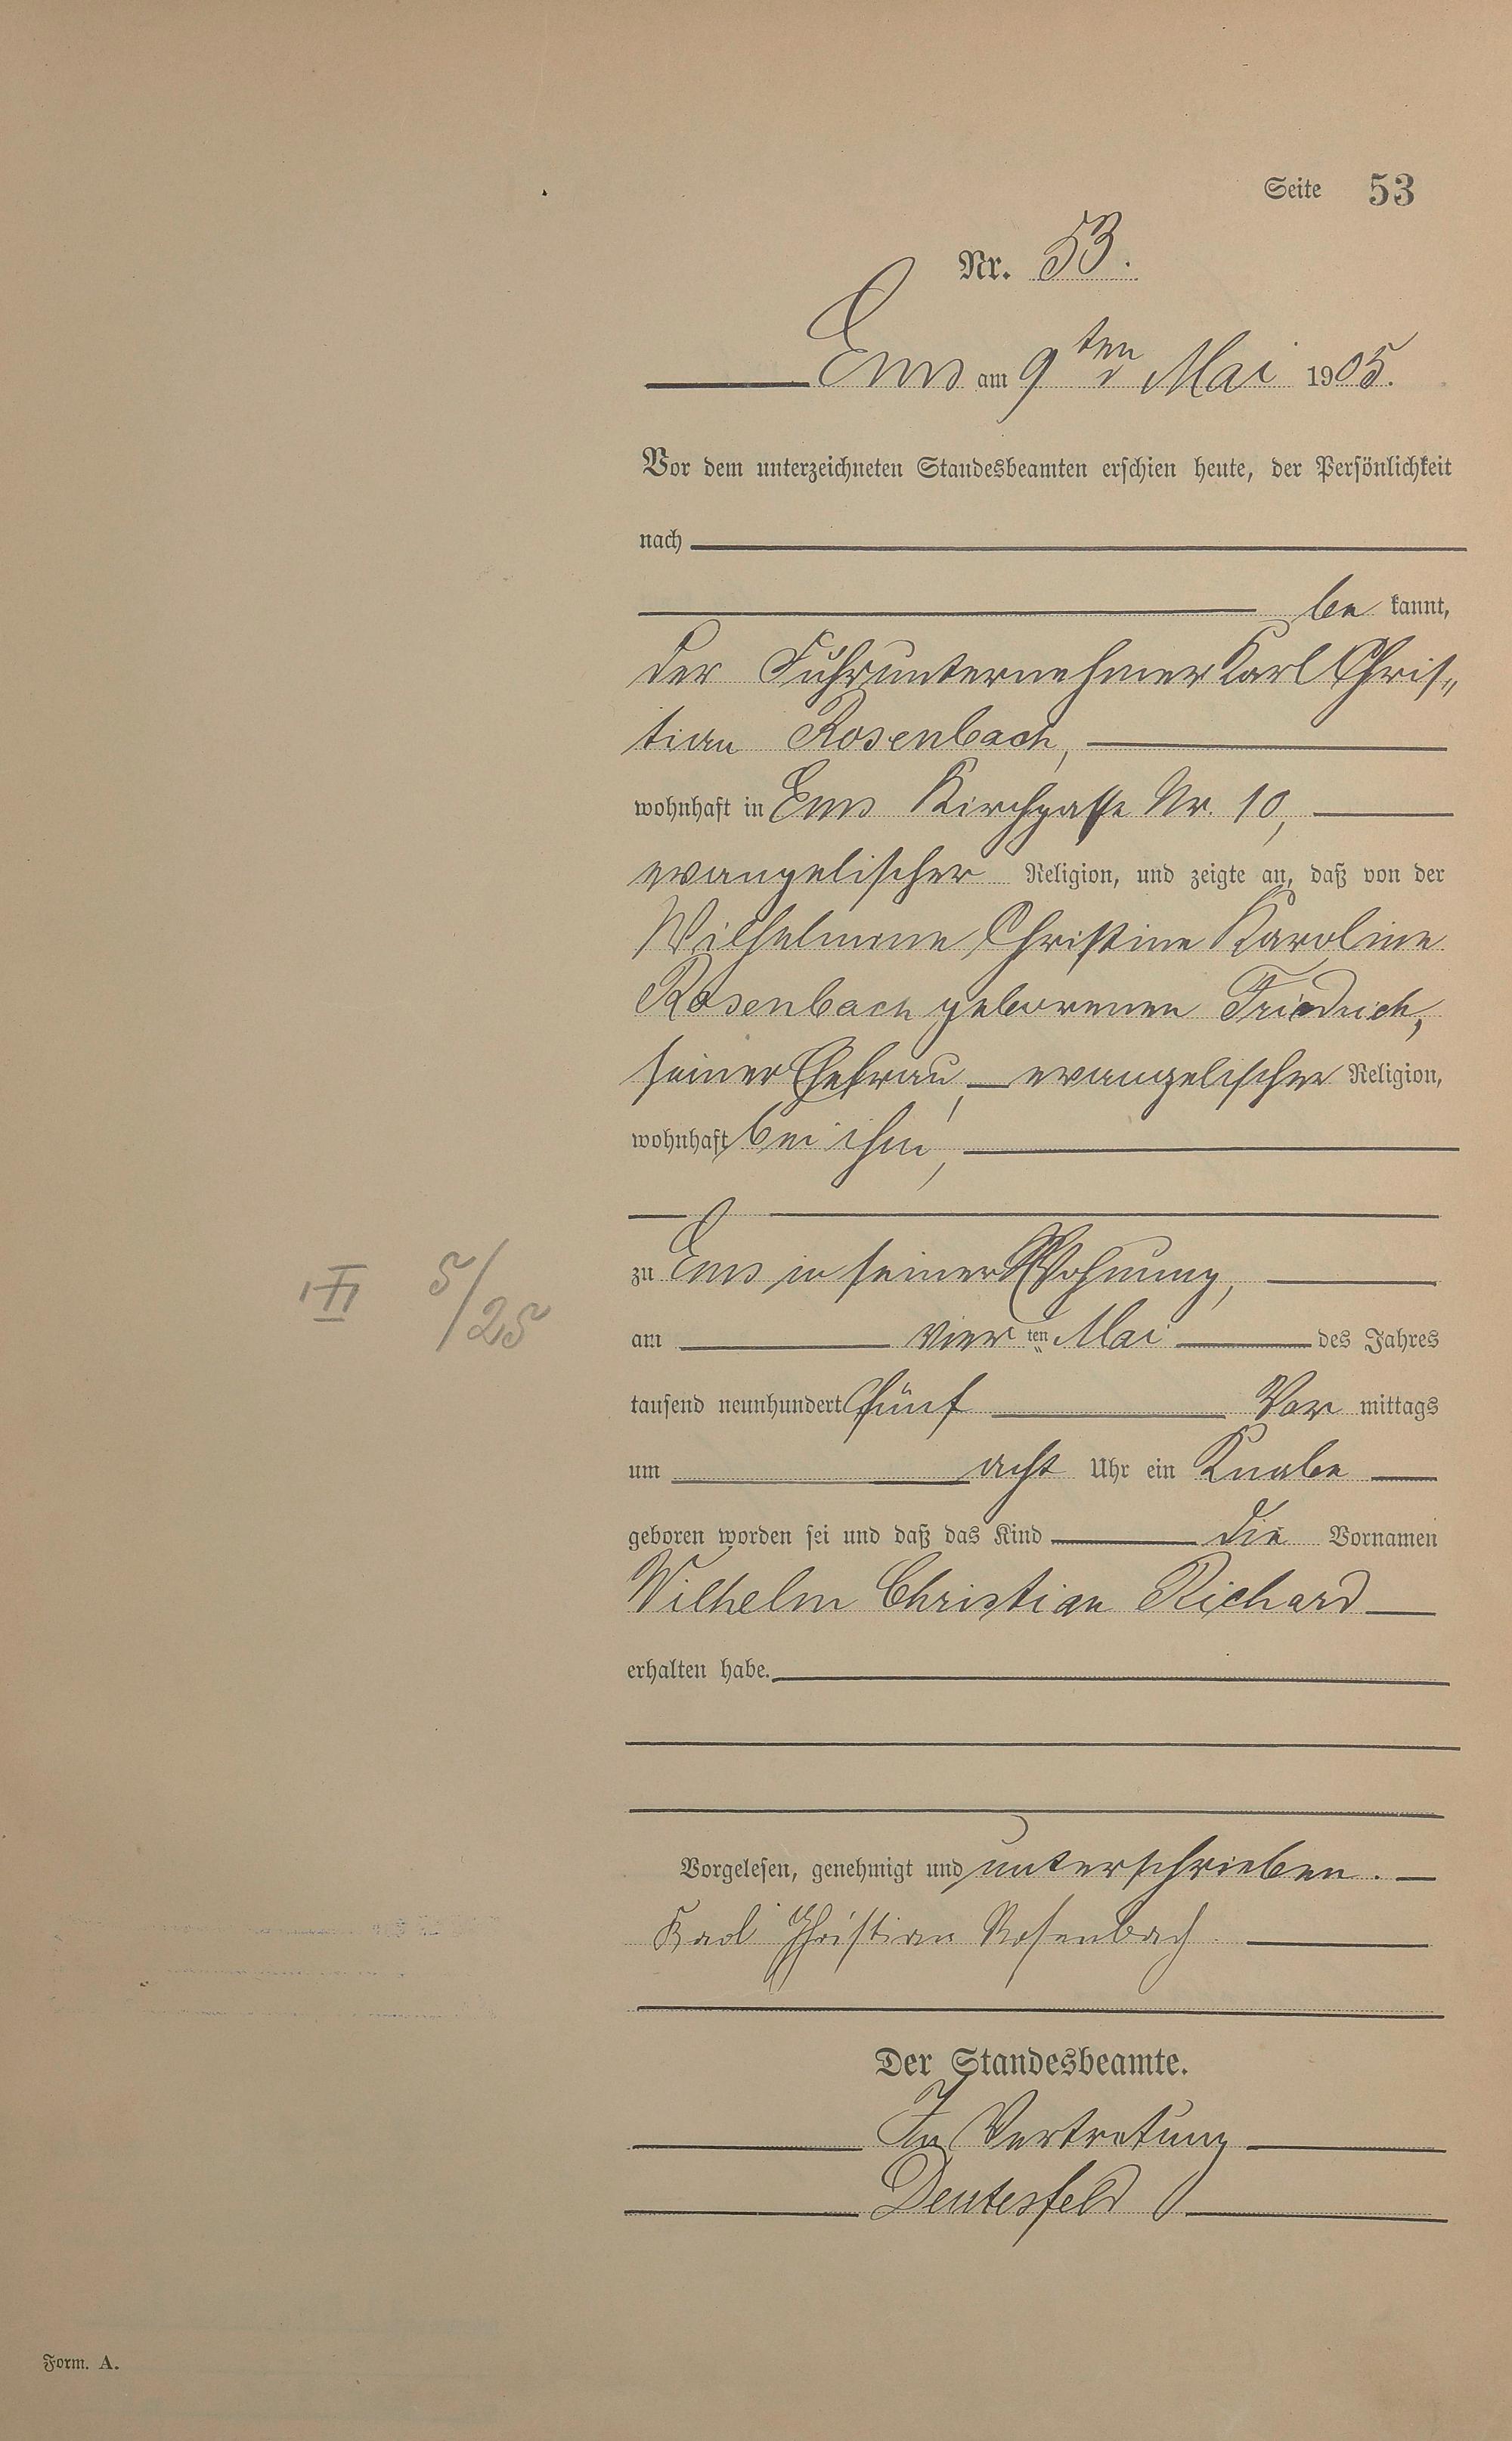 Seite 53
Nr. 53.
Ems am 9ten Mai 1905.
Vor dem unterzeichneten Standesbeamten erschien heute, der Persönlichkeit
nach
be kannt,
der Fuhrunternehmer Karl Chris„
tian Rosenbach,
wohnhaft in Ems Kirchgasse Nr. 10,
evangelischer Religion, und zeigte an, daß von der
Wilhelmine Christine Karoline
Rosenbach geborenen Friedrich,
seiner Ehefrau, evangelischer Religion,
wohnhaft bei ihm,
zu Ems in seiner Wohnung,
III 5/25
am vier ten Mai des Jahres
tausend neunhundert fünf Vor mittags
um acht Uhr ein Knabe
geboren worden sei und daß das Kind die Vornamen
Wilhelm Christian Richard
erhalten habe.
Vorgelesen, genehmigt und unterschrieben.
Karl Christian Rosenbach
Der Standesbeamte.
In Vertretung
Deutesfeld
Form. A.